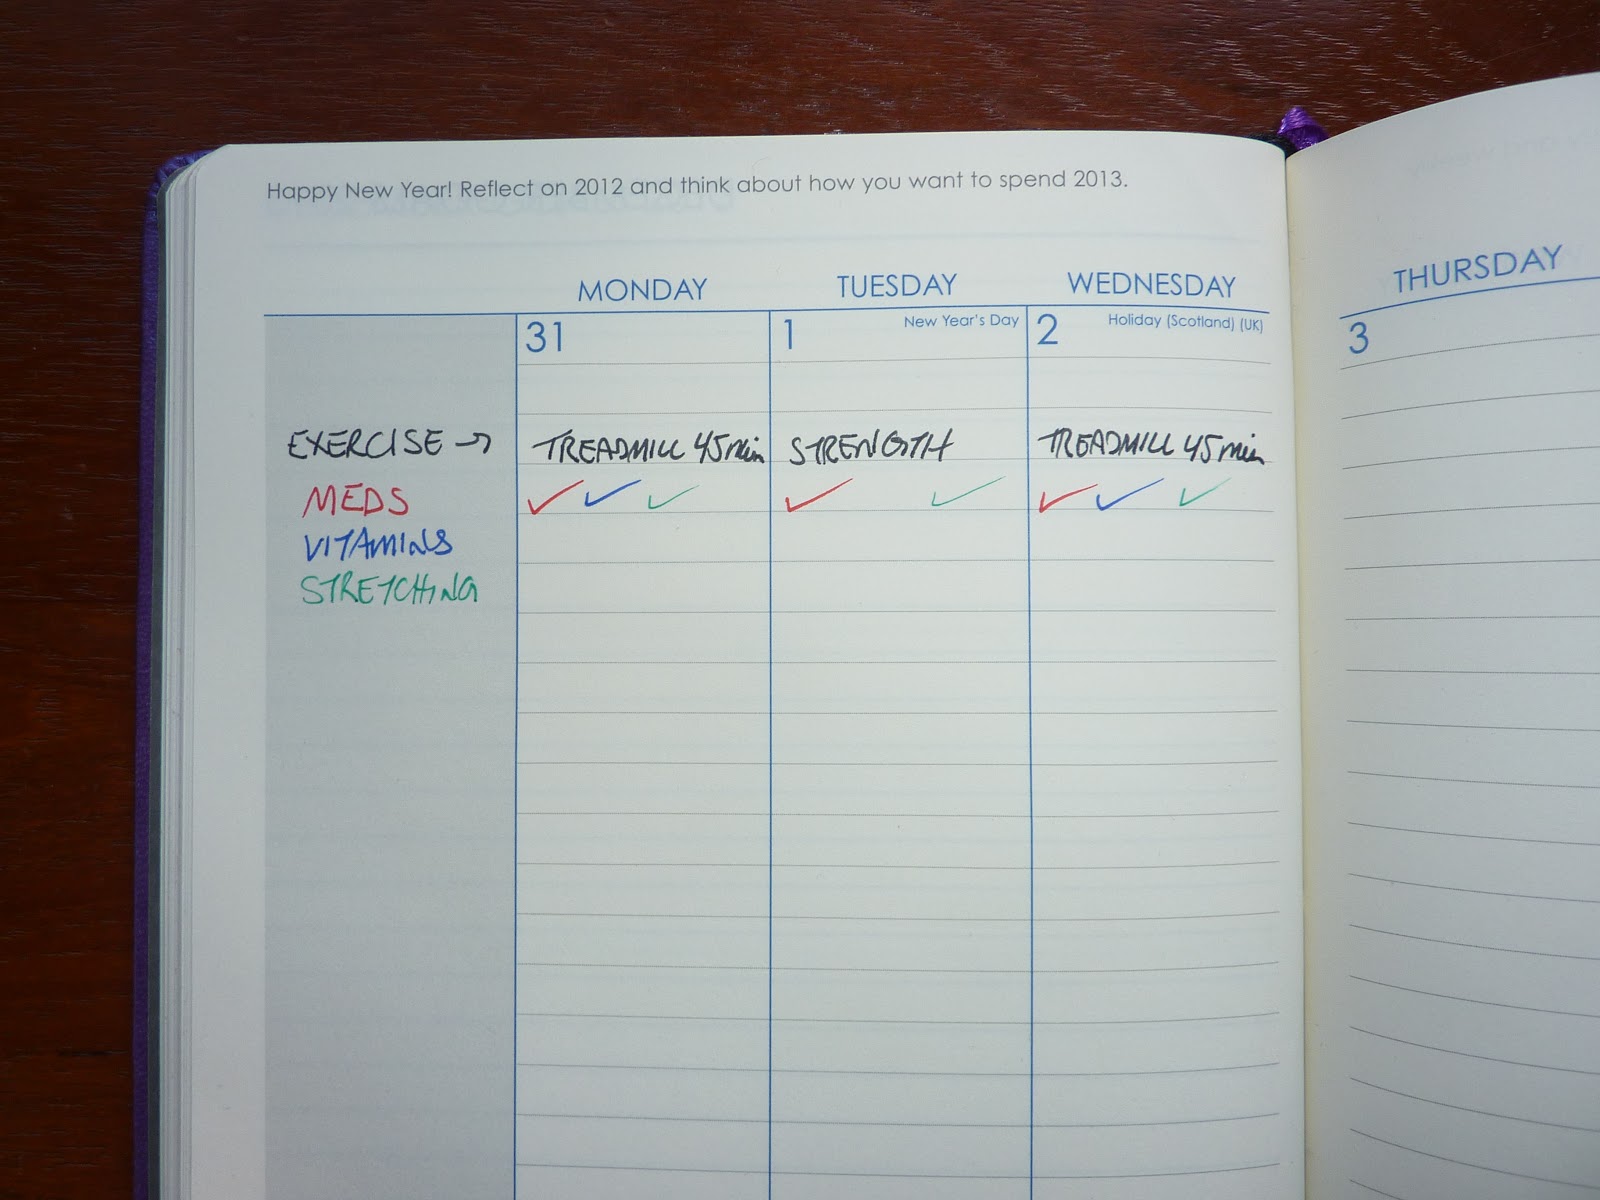 Happy New Year! Reflect on 2012 and think about how you want to spend 2013.
MONDAY TUESDAY WEDNESDAY THURSDAY
31 1 New Year's Day 2 Holiday (Scotland) (UK) 3
EXERCISE → TREADMILL 45 min STRENGTH TREADMILL 45 min
MEDS ✓ ✓ ✓ ✓ ✓ ✓ ✓ ✓
VITAMINS
STRETCHING